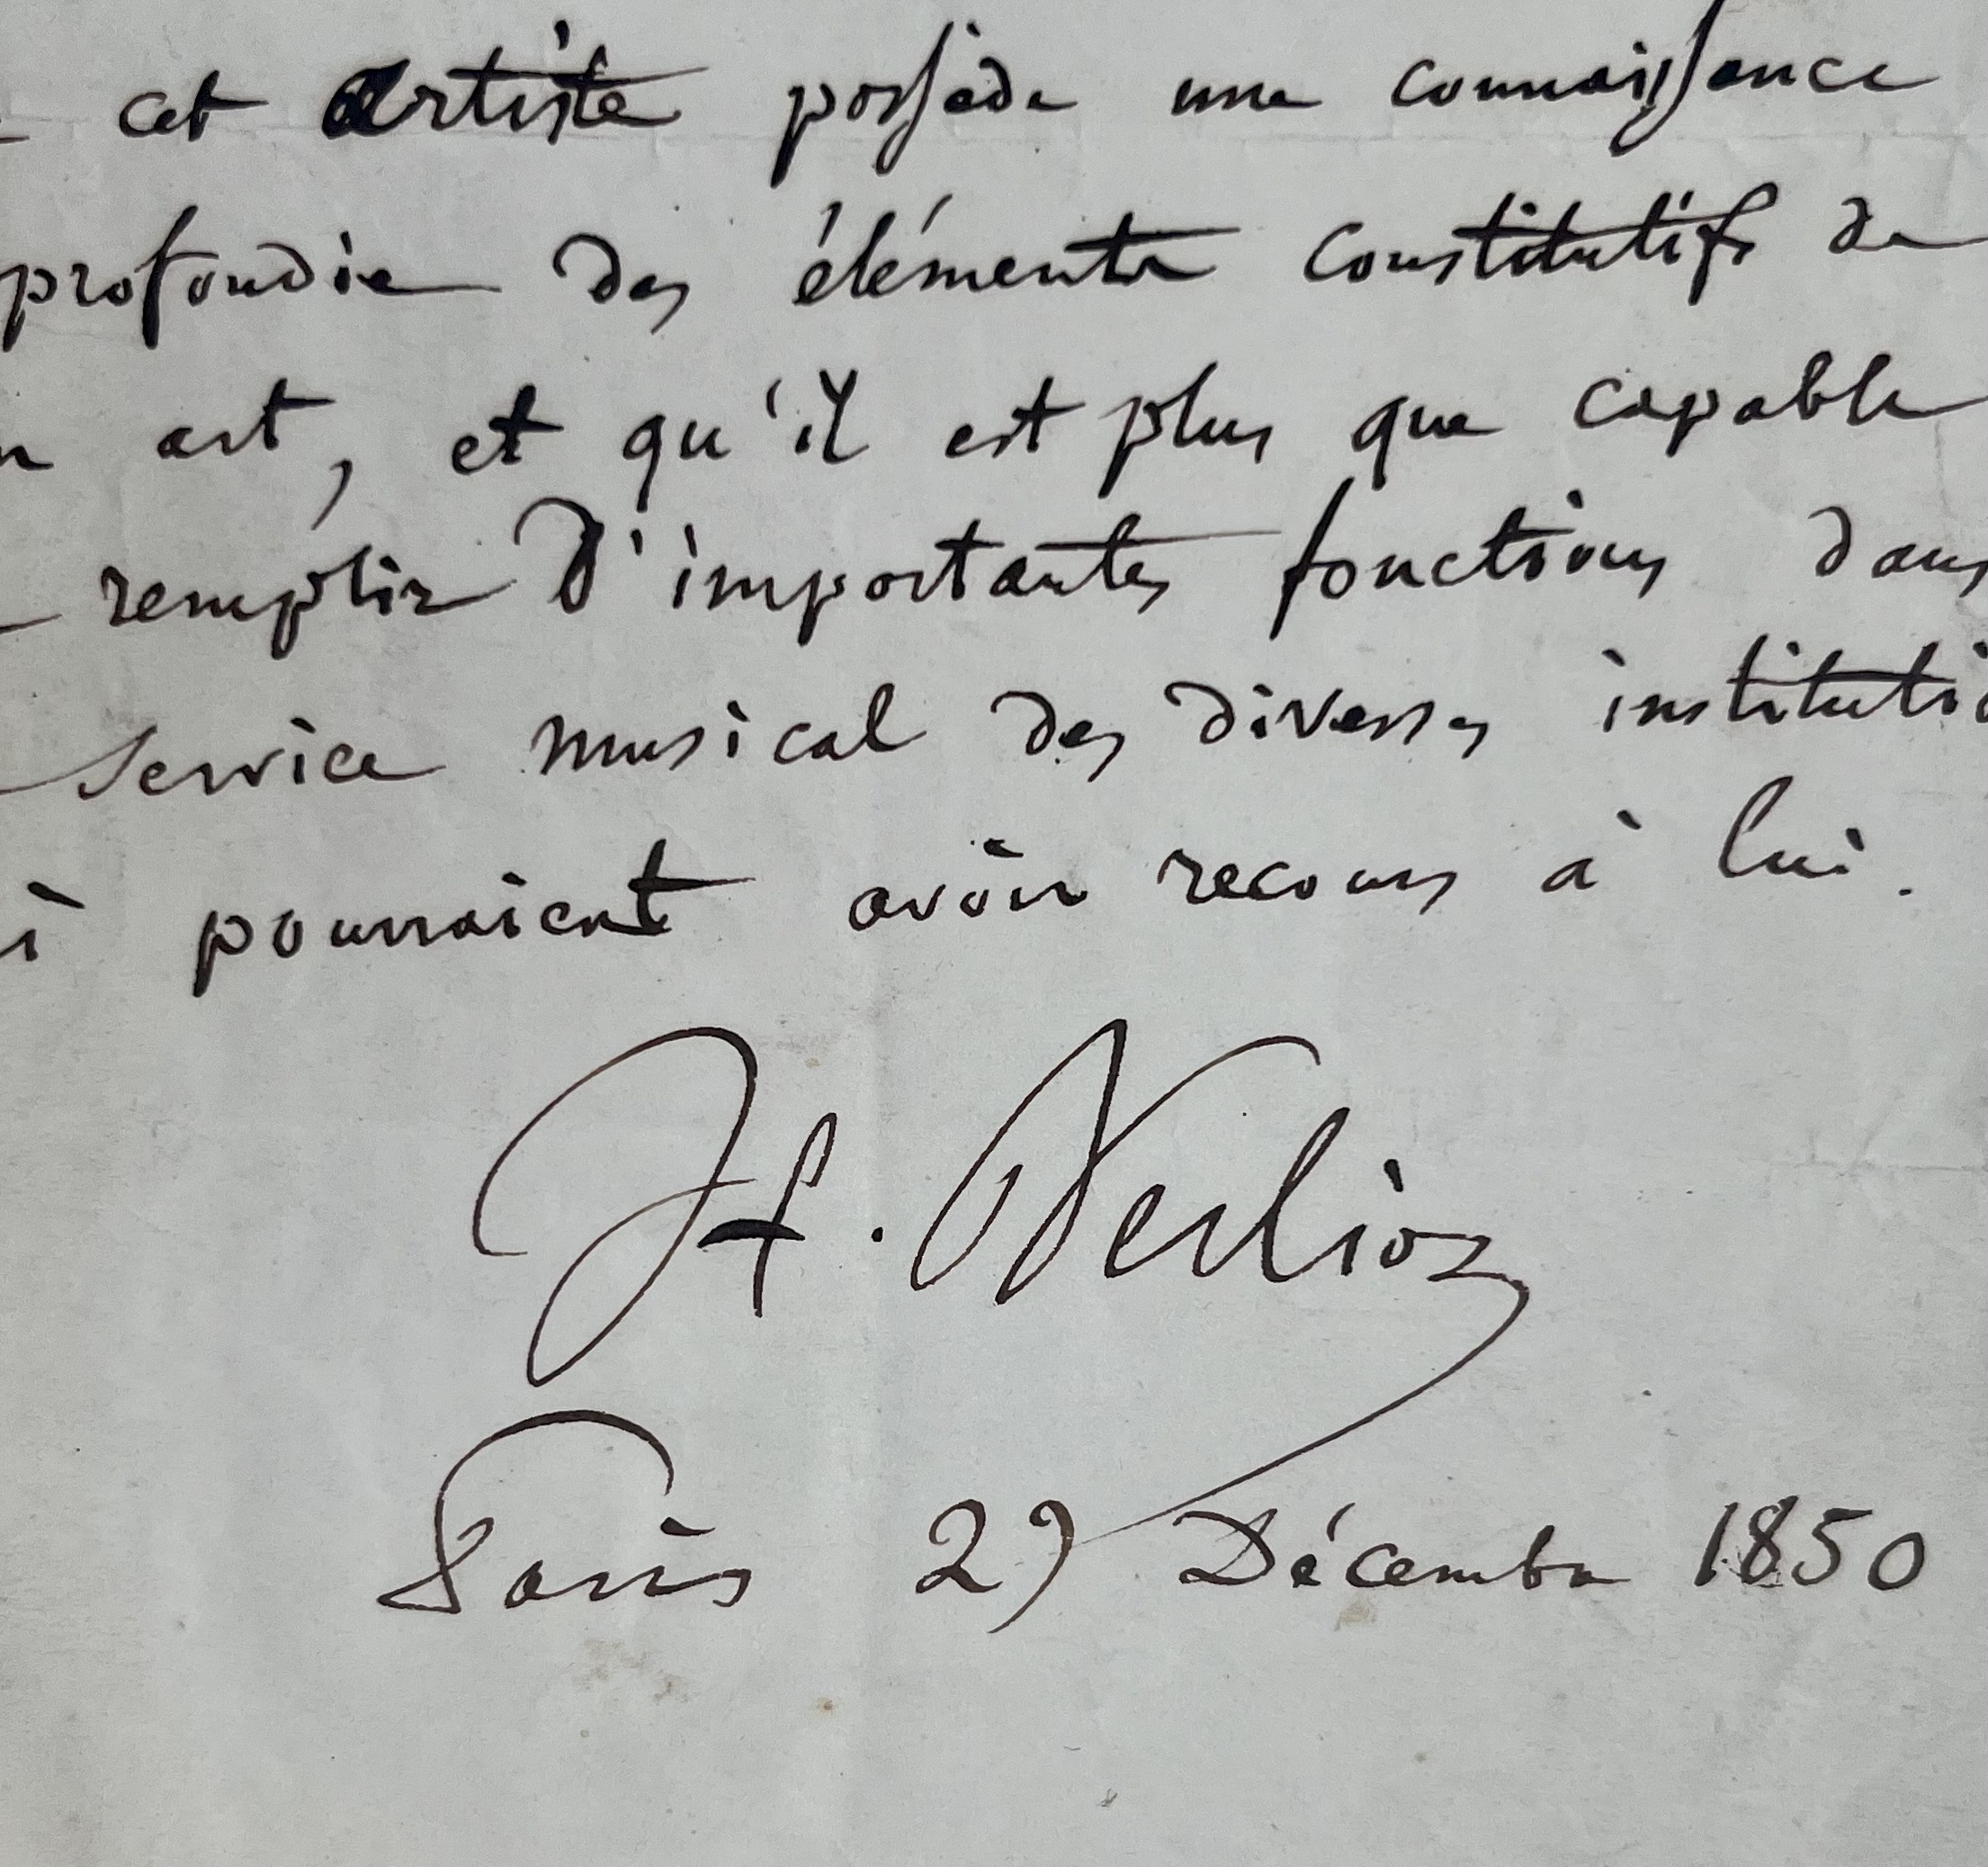 cet artiste possède une connaissance
profondie des éléments constitutifs de
art, et qu'il est plus que capable
remplir d'importantes fonctions dans
service musical des diverses institutio
i pourraient avoir recours à lui.
H. Berlioz
Paris 29 Décembre 1850